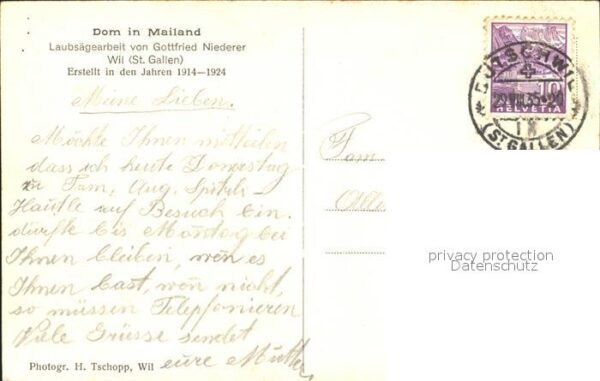 Dom in Mailand
Laubsägearbeit von Gottfried Niederer
Wil (St. Gallen)
Erstellt in den Jahren 1914—1924
Meine Lieben.
Möchte Ihnen mitteilen
dass ich heute Donastag
zu Fam. Aug.
Hautle auf Besuch bin.
dürfte bis Montag bei
Ihnen bleiben, wen es
Ihnen bast, wen nicht,
so müssen Telepfonieren
Viele Grüsse sendet
eure Mutter
Photogr. H. Tschopp, Wil
BÜTSCHWIL
(ST. GALLEN)
10
HELVETIA
Fam
privacy protection
Datenschutz